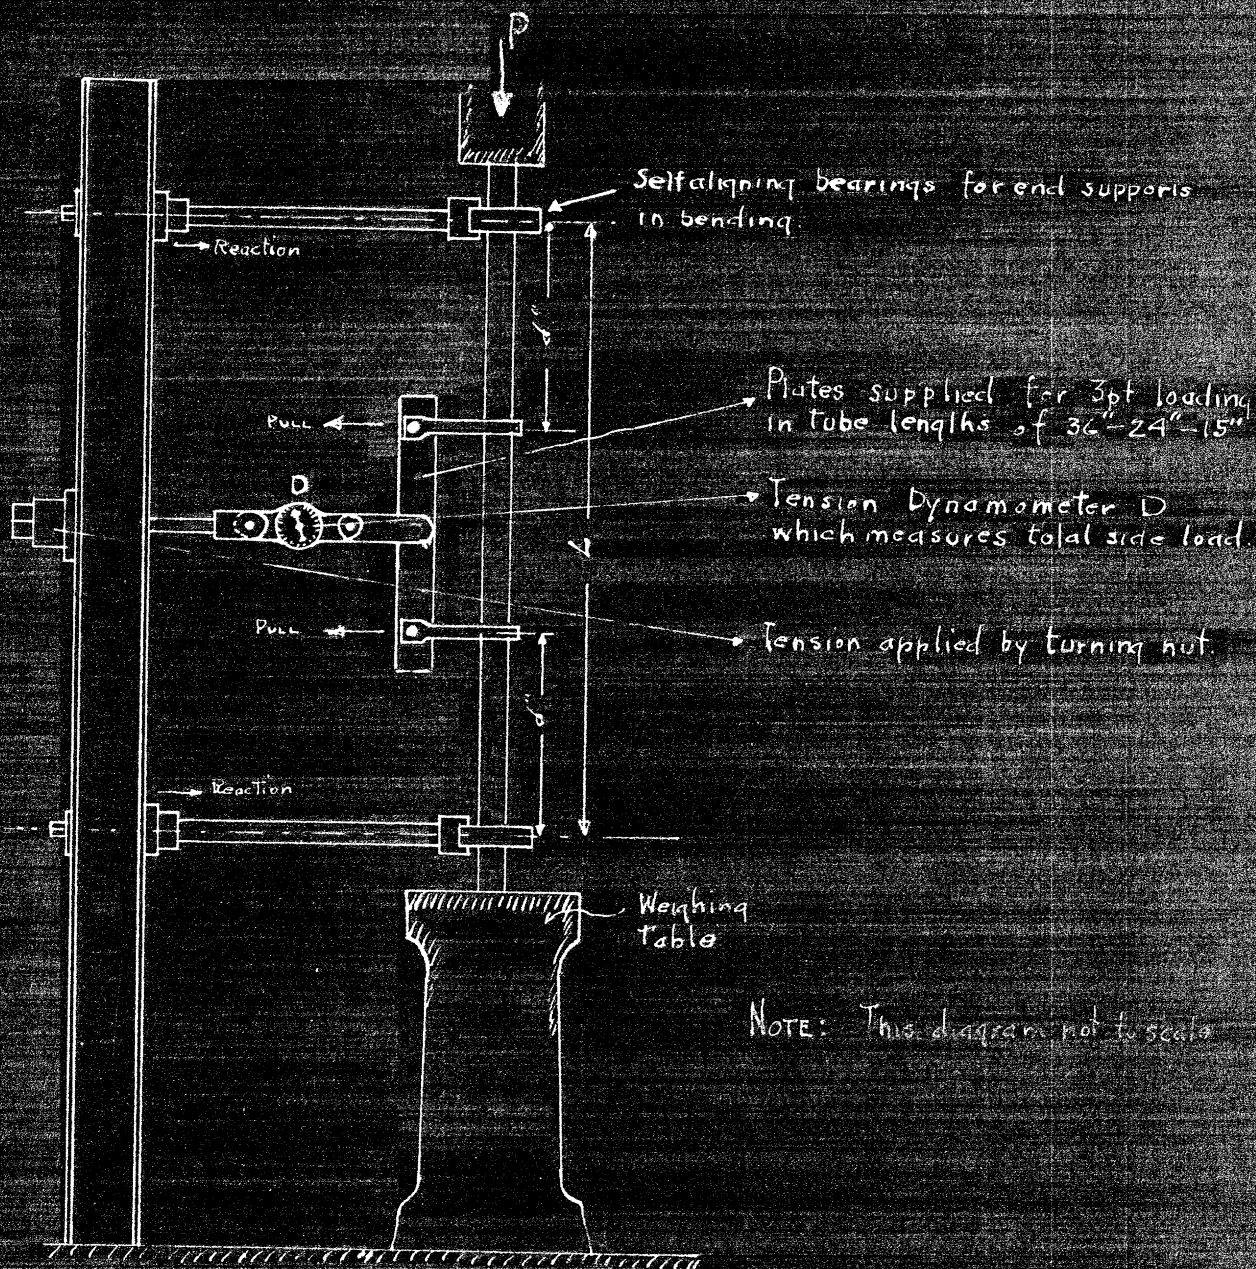 P
Selfaligning bearings for end supports
in bending.
Reaction
Plates supplied for 3pt loading
in tube lengths of 36"-24"-15"
PULL
D
Tension Dynamometer D
which measures total side load.
L
PULL
Tension applied by turning nut.
Reaction
Weighing
Table
NOTE: This diagram not to scale